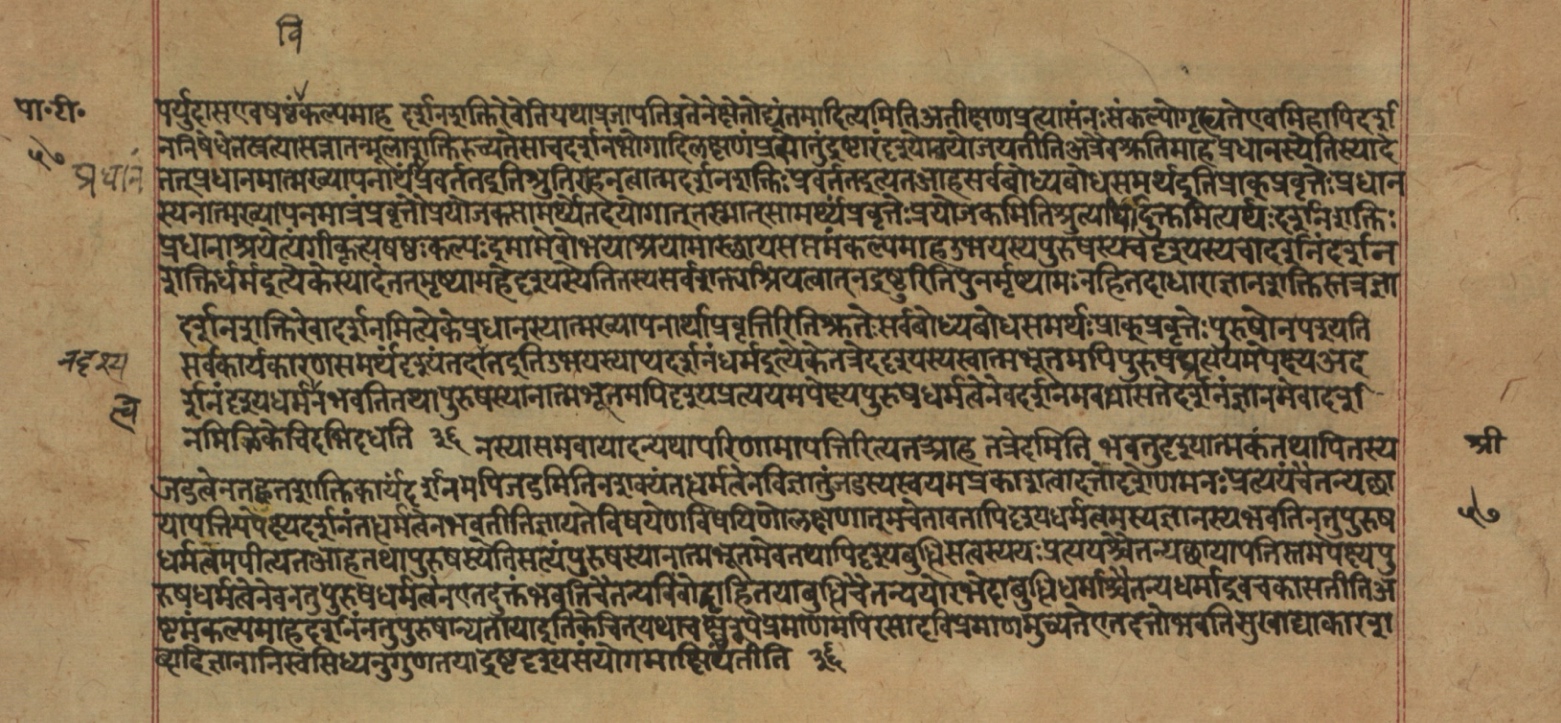 वि
पा॰टी॰ पर्युदासएवषष्ठंकल्पमाह दर्शनशक्तिरेवेतियथाप्रजापतिव्रतेनेक्षेतोद्यंतमादित्यमितिअनीक्षणप्रत्यासंनःसंकल्पोगृह्यतेएवमिहापिदर्श
५७ ननिषेधेतत्प्रत्यासन्नातन्मूलाशक्तिरुच्यतेसाचदर्शनंभोगादिलक्षणंप्रसोतुंद्रष्टारंदृश्येनयोजयतीतिअत्रैवश्रुतिमाहप्रधानस्येतिस्यादे
प्रधानं तत्प्रधानमात्मख्यापनार्थंप्रवर्ततइतिश्रुतिराहनत्वात्मदर्शनशक्तिःप्रवर्ततइत्यतआहसर्वबोध्यबोधसमर्थइतिप्राक्प्रवृत्तेःप्रधान
स्यनात्मख्यापनमात्रंप्रवृत्तौप्रयोजकसामर्थ्येतदयोगात्तस्मात्सामर्थ्यंप्रवृत्तेःप्रयोजकमितिश्रुत्यार्थादुक्तमित्यर्थःदर्शनशक्तिः
प्रधानाश्रयेत्यंगीकृत्यषष्ठःकल्पःइमामेवोभयाश्रयामास्छायसप्तमंकल्पमाहउभयस्यपुरुषस्यचदृश्यस्यचादर्शनंदर्शन
शक्तिर्धर्मइत्येकेस्यादेतत्मृष्यामहेदृश्यस्येतितस्यसर्वशक्त्याश्रयत्वात्नद्रष्टुरितिपुनर्मृष्यामःनहितदाधाराज्ञानशक्तिस्तत्रज्ञा
दर्शनशक्तिरेवादर्शनमित्येकेप्रधानस्यात्मख्यापनार्थाप्रवृत्तिरितिश्रुतेःसर्वबोध्यबोधसमर्थःप्राक्प्रवृत्तेःपुरुषोनपश्यति
नदृश्य सर्वकार्यकारणसमर्थंदृश्यंतदानदृइतिउभयस्याप्यदर्शनंधर्मइत्येकेतत्रेदंदृश्यस्यस्वात्मभूतमपिपुरुषप्रत्ययमपेक्ष्यअद
त्वे र्शनंदृश्यधर्मनभवतितथापुरुषस्यानात्मभूतमपिदृश्यप्रत्ययमपेक्ष्यपुरुषधर्मत्वेनेवदर्शनमवभासतेदर्शनंज्ञानमेवादर्श
नमितिकेचिदभिदधति ३६ नस्यासमवायादन्यथापरिणामापत्तिरित्यतआह तत्रेदमिति भवतुदृश्यात्मकंतथापितस्य श्री
जडत्वेनतद्गतशक्तिकार्यंदर्शनमपिजडमितिनशक्यंतद्धर्मत्वेनविज्ञातुंजडस्यस्वयमप्रकाशत्वादतोदृशेणमनःप्रत्ययंचैतन्यछा
यापत्तिमपेक्ष्यदर्शनंतद्धर्मत्वेनभवतीतिज्ञायतेविषयेणविषयिणोलक्षणात्नुमचैतावतापिदृश्यधर्मत्वमस्यज्ञानस्यभवतिनतुपुरुष ५७
धर्मत्वमपीत्यतआहतथापुरुषस्येतिसत्यंपुरुषस्यानात्मभूतमेवतथापिदृश्यबुद्धिसत्वस्ययःप्रत्ययश्चैतन्यछायापत्तिस्तमपेक्ष्यपु
रुषधर्मत्वेनेवनतुपुरुषधर्मत्वेनएतदुक्तंभवतिचैतन्यबिंबोद्ग्राहितयाबुद्धिचैतन्ययोरभेदाबुद्धिधर्माश्चैतन्यधर्माइवचकासतीतिअ
ष्टमंकल्पमाहदर्शनंनतुपुरुषान्यतायाइतिकेचित्यथाचक्षूरूपेप्रमाणमपिरसादवप्रमाणमुच्यतेएतदुक्तोभवतिसुखाद्याकारश
ब्दादिज्ञानानिस्वसिध्यनुगुणतयाद्रष्टृदृश्यसंयोगमाक्षिपंतीति ३६